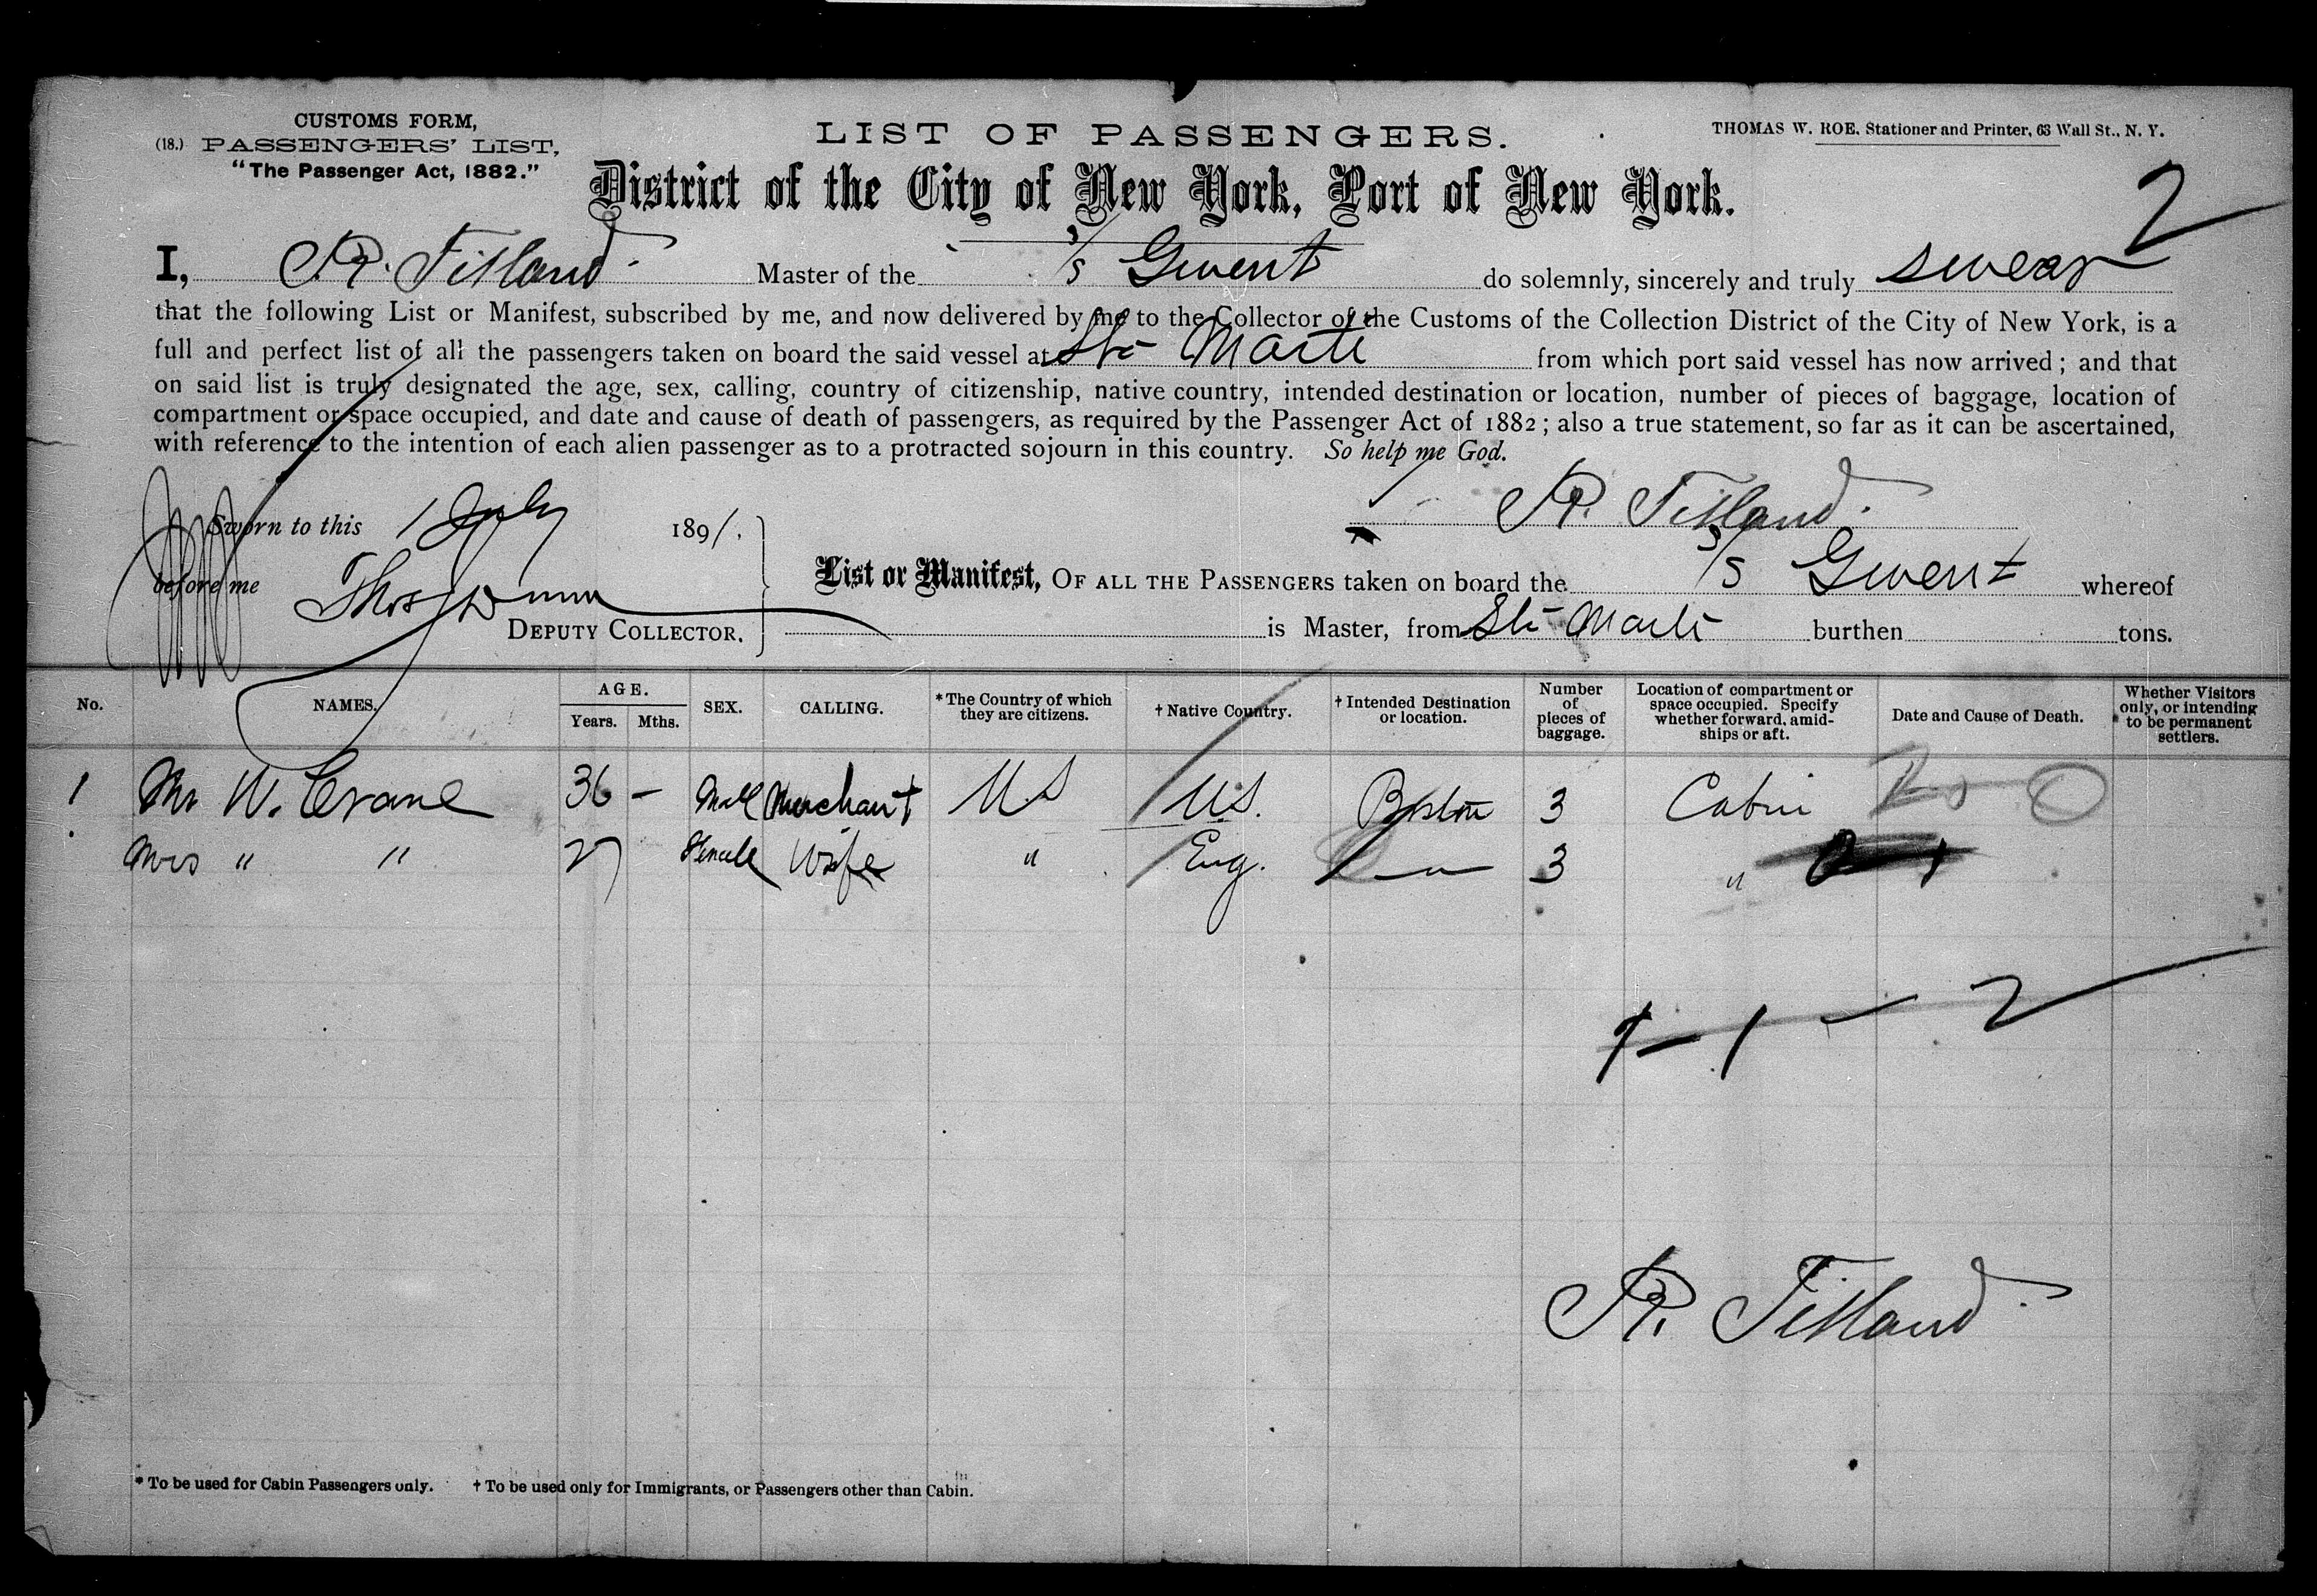 CUSTOMS FORM,
(18.) PASSENGERS' LIST,
"The Passenger Act, 1882."
LIST OF PASSENGERS.
THOMAS W. ROE, Stationer and Printer, 63 Wall St., N. Y.
District of the City of New York, Port of New York.
2
I, R. Master of the s/s Gwent do solemnly, sincerely and truly swear
that the following List or Manifest, subscribed by me, and now delivered by me to the Collector of the Customs of the Collection District of the City of New York, is a
full and perfect list of all the passengers taken on board the said vessel at Sta Marta from which port said vessel has now arrived; and that
on said list is truly designated the age, sex, calling, country of citizenship, native country, intended destination or location, number of pieces of baggage, location of
compartment or space occupied, and date and cause of death of passengers, as required by the Passenger Act of 1882; also a true statement, so far as it can be ascertained,
with reference to the intention of each alien passenger as to a protracted sojourn in this country. So help me God.
R.
Sworn to this 1 July 1891.
before me Thos Dunn
DEPUTY COLLECTOR.
List or Manifest, OF ALL THE PASSENGERS taken on board the s/s Gwent whereof
is Master, from Sta Marta burthen tons.
No. NAMES. AGE. Years. Mths. SEX. CALLING. *The Country of which they are citizens. † Native Country. † Intended Destination or location. Number of pieces of baggage. Location of compartment or space occupied. Specify whether forward, amidships or aft. Date and Cause of Death. Whether Visitors only, or intending to be permanent settlers.
1 Mr W. Crane 36 — Male Merchant US US. Boston 3 Cabin
Mrs " " 27 Female Wife " Eng. — " — 3 "
1 — 1 — 2
R.
* To be used for Cabin Passengers only. † To be used only for Immigrants, or Passengers other than Cabin.